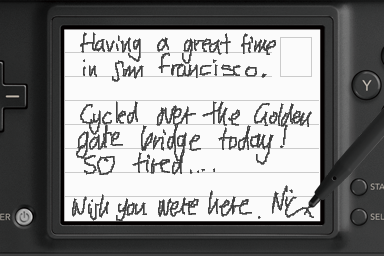 Having a great time
in San Francisco.
Cycled over the Golden
gate bridge today!
SO tired...
Wish you were here. Nic
Y
STA
SEL
ER